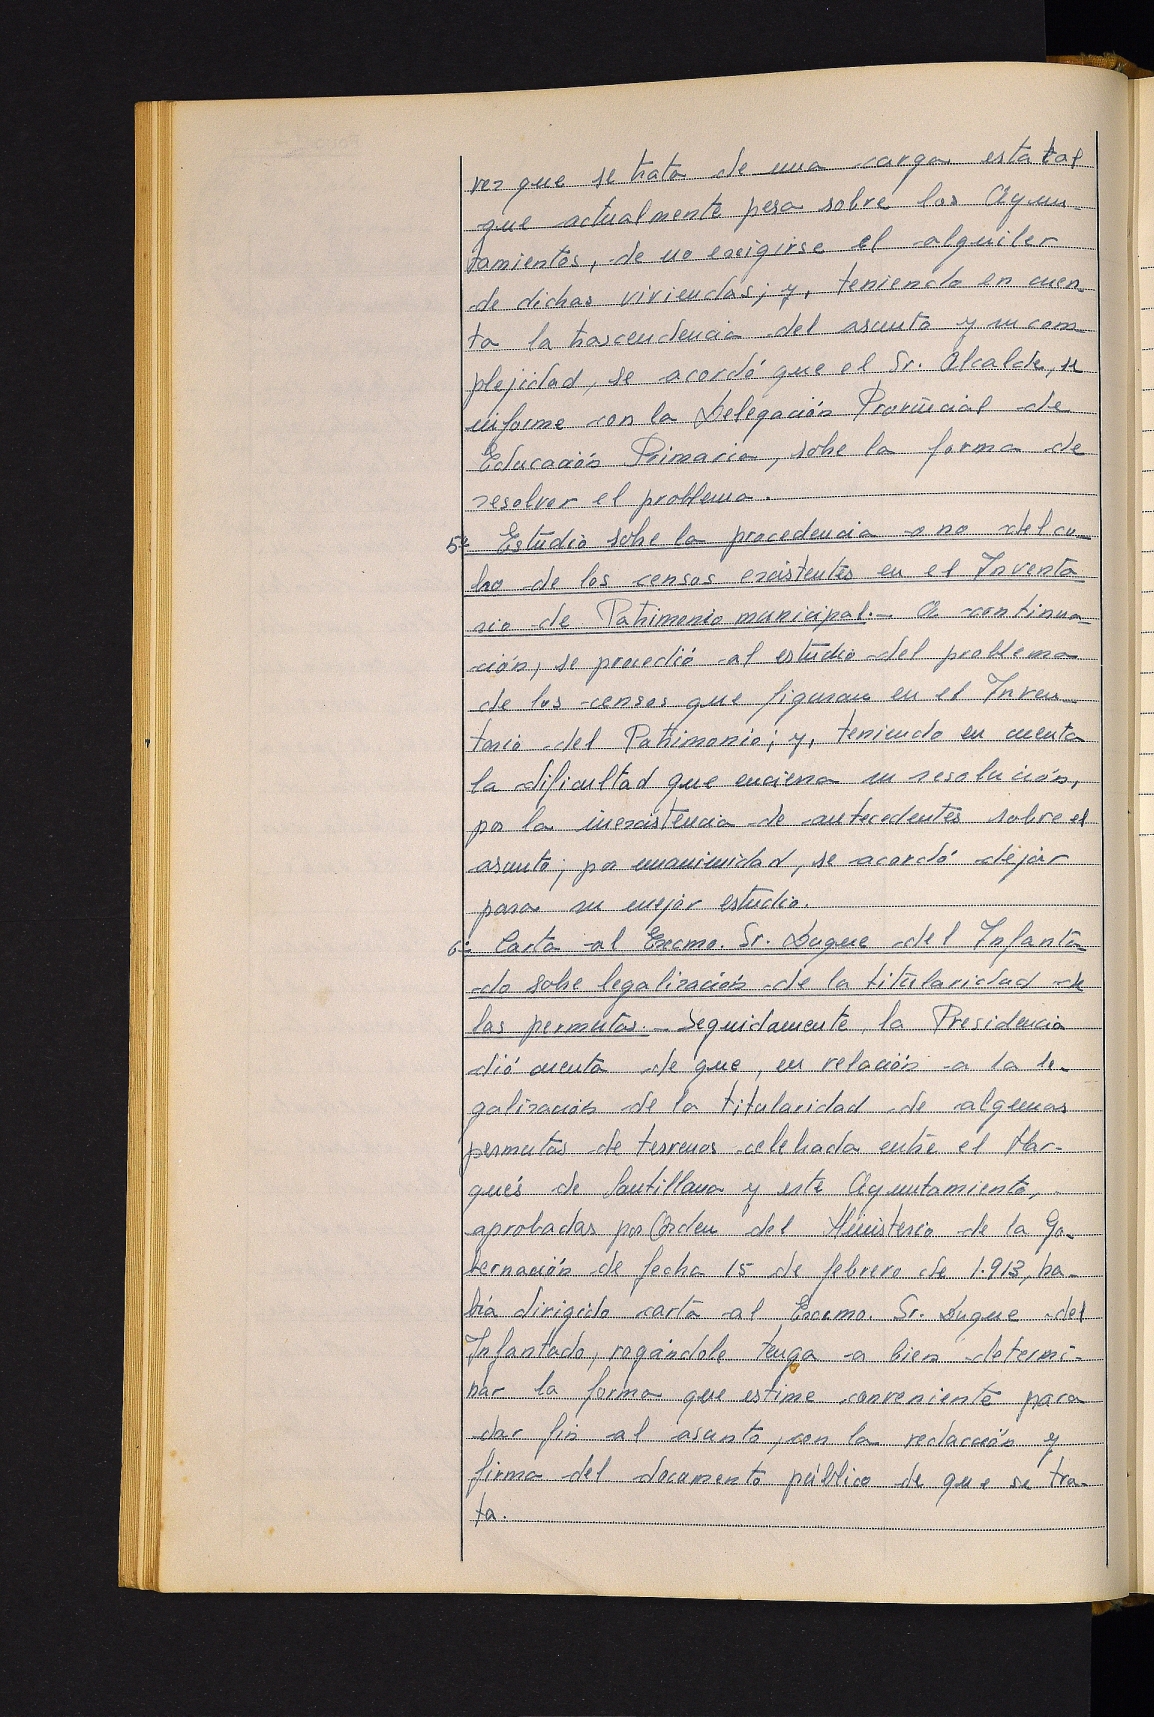 vez que se trata de una carga estatal
que actualmente pesa sobre los Ayun-
tamientos, de no exigirse el alquiler
de dichas viviendas; y, teniendo en cuen-
ta la trascendencia del asunto y su com-
plejidad, se acordó que el Sr. Alcalde, se
informe con la Delegación Provincial de
Educación Primaria, sobre la forma de
resolver el problema.
5º Estudio sobre la procedencia o no del co-
bro de los censos existentes en el Inventa-
rio de Patrimonio municipal.- A continua-
ción, se procedió al estudio del problema
de los censos que figuran en el Inven-
tario del Patrimonio; y, teniendo en cuenta
la dificultad que encierra su resolución,
por la inexistencia de antecedentes sobre el
asunto; por unanimidad, se acordó dejar
para su mejor estudio.
6º Carta al Excmo. Sr. Duque del Infanta-
do sobre legalización de la titularidad de
las permutas.- Seguidamente, la Presidencia
dió cuenta de que, en relación a la le-
galización de la titularidad de algunas
permutas de terrenos celebrada entre el Mar-
qués de Santillana y este Ayuntamiento,
aprobadas por Orden del Ministerio de la Go-
bernación de fecha 15 de febrero de 1.913, ha-
bía dirigido carta al Excmo. Sr. Duque del
Infantado, rogándole tenga a bien determi-
nar la forma que estime conveniente para
dar fin al asunto, con la redacción y
firma del documento público de que se tra-
ta.